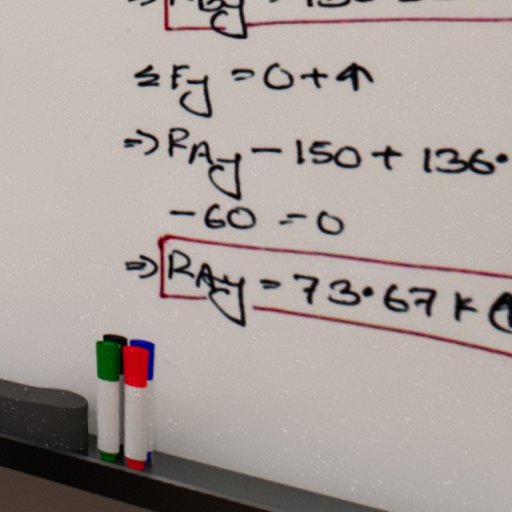 ΣFy = 0 + ↑
⇒ RAy - 150 + 136.
- 60 = 0
⇒ RAy = 73.67 K